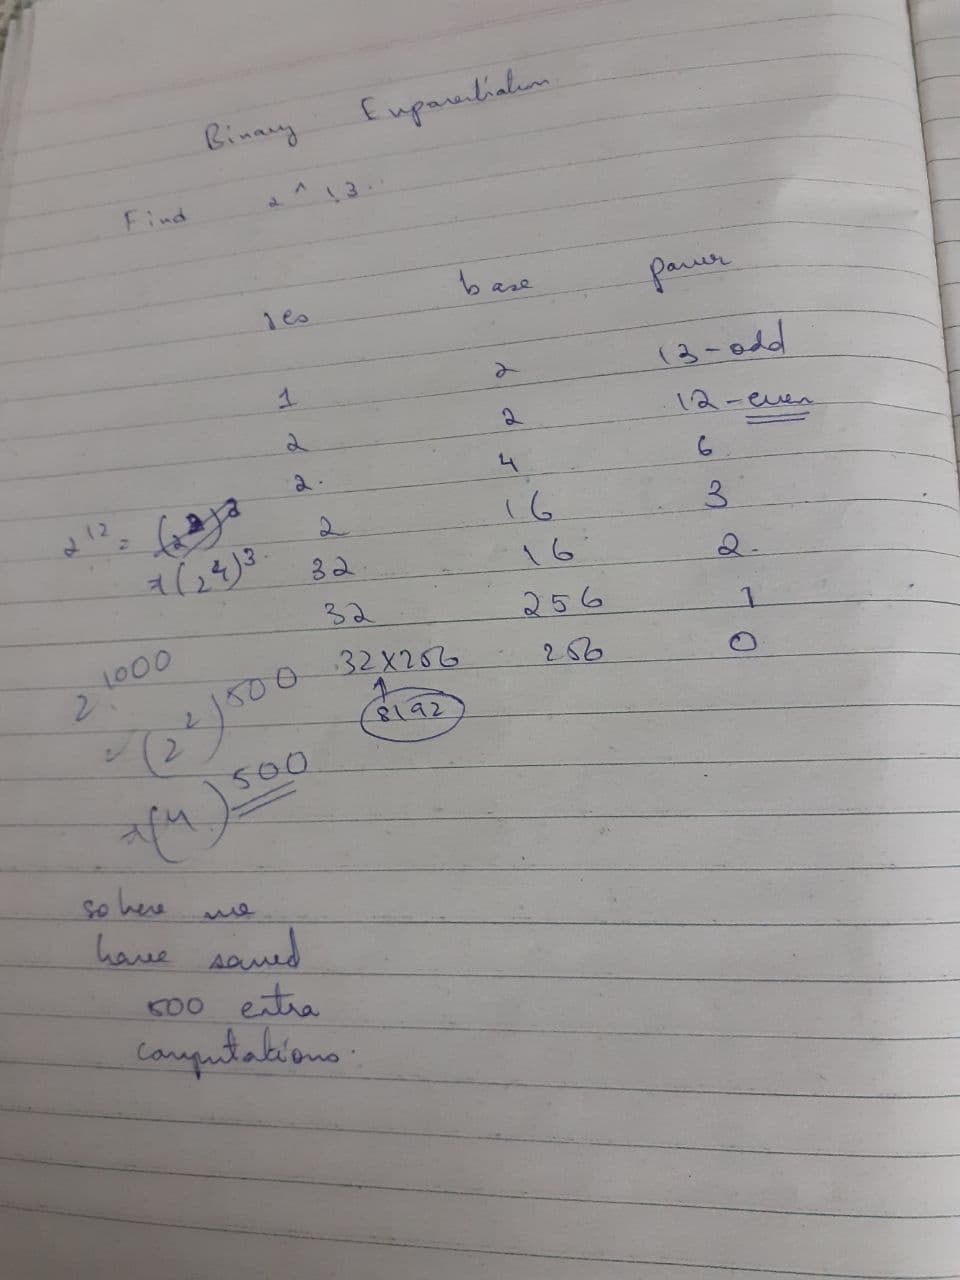 Binary Exponentiation
Find 2 ^ 13..
res base power
1 2 13 - odd
2 2 12 - even
2. 4 6
2 16 3
32 16 2.
32 256 1
32 x 256 256 0
8192
2^12 = (2^2)^2
= (2^4)^3
2^1000
= (2^2)^500
= (4)^500
so here we
have saved
500 extra
computations.